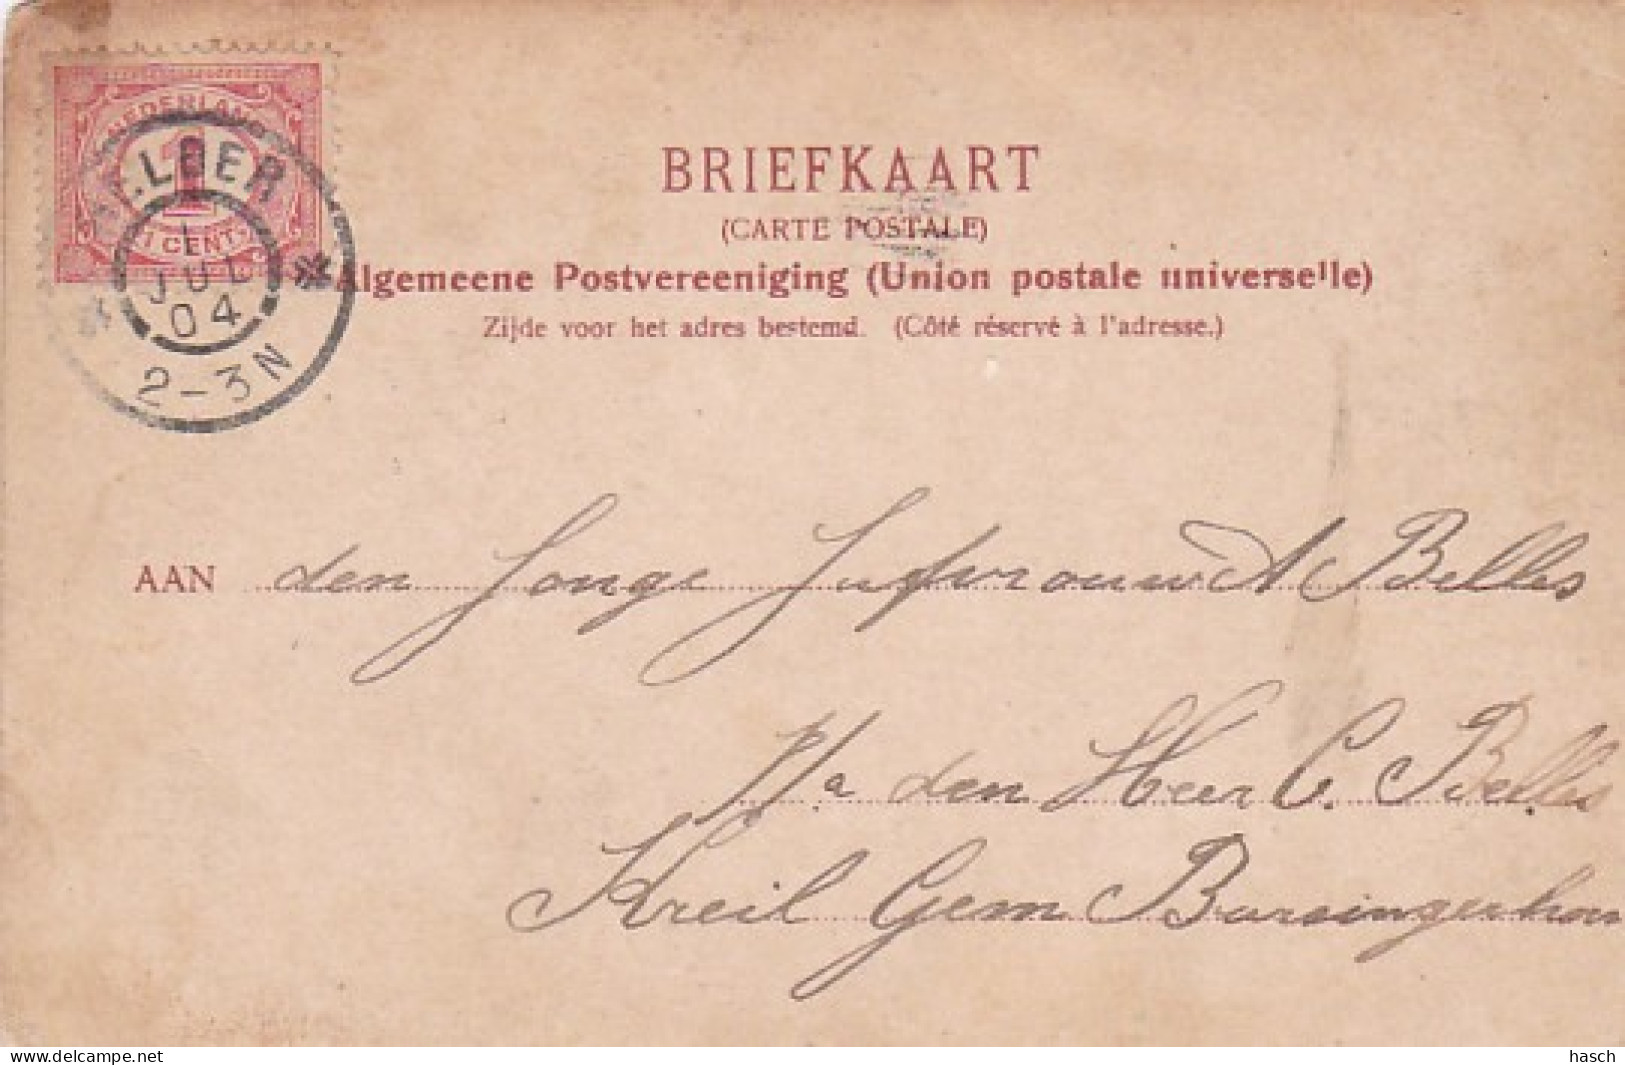 NEDERLAND
1
1 CENT
HELDER
1
JUL
04
2-3N
BRIEFKAART
(CARTE POSTALE)
Algemeene Postvereeniging (Union postale universelle)
Zijde voor het adres bestemd. (Côté réservé à l'adresse.)
AAN den Jonge Jufvrouw A Belles
p/a den Heer C. Belles
Kreil Gem Barsingerhorn
delcampe.net
hasch